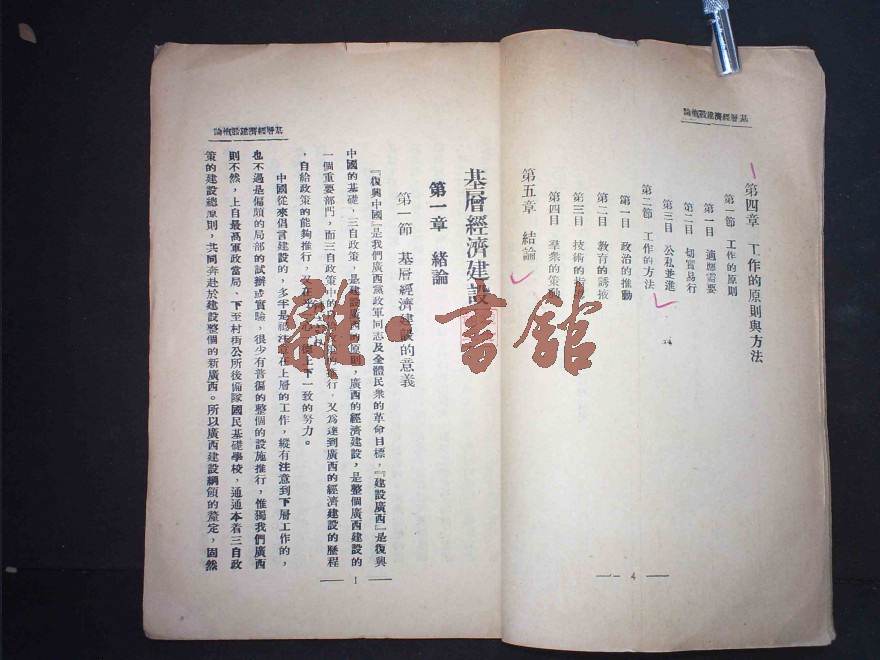 基層經濟建設概論
第四章　工作的原則與方法
第一節　工作的原則
第一目　適應需要
第二目　切實易行
第三目　公私並進
第二節　工作的方法
第一目　政治的推動
第二目　教育的誘掖
第三目　技術的指
第四目　羣衆的策
第五章　結論
— 4 —
基層經濟建設概論
基層經濟建設
第一章　緒論
第一節　基層經濟建設的意義
『復興中國』是我們廣西黨政軍同志及全體民衆的革命目標，『建設廣西』是復興
中國的基礎，三自政策，是建設廣西的原則，廣西的經濟建設，是整個廣西建設的
一個重要部門，而三自政策中的　　　進行，又爲達到廣西的經濟建設的歷程
，自給政策的能夠推行，又在　心　上下一致的努力。
中國從來倡言建設的，多半是祗注意在上層的工作，縱有注意到下層工作的，
也不過是偏頗的局部的試辦或實驗，很少有普徧的整個的設施推行，惟獨我們廣西
則不然，上自最高軍政當局，下至村街公所後備隊國民基礎學校，通通本着三自政
策的建設總原則，共同奔赴於建設整個的新廣西。所以廣西建設綱領的釐定，固然
— 1 —
雜·書館